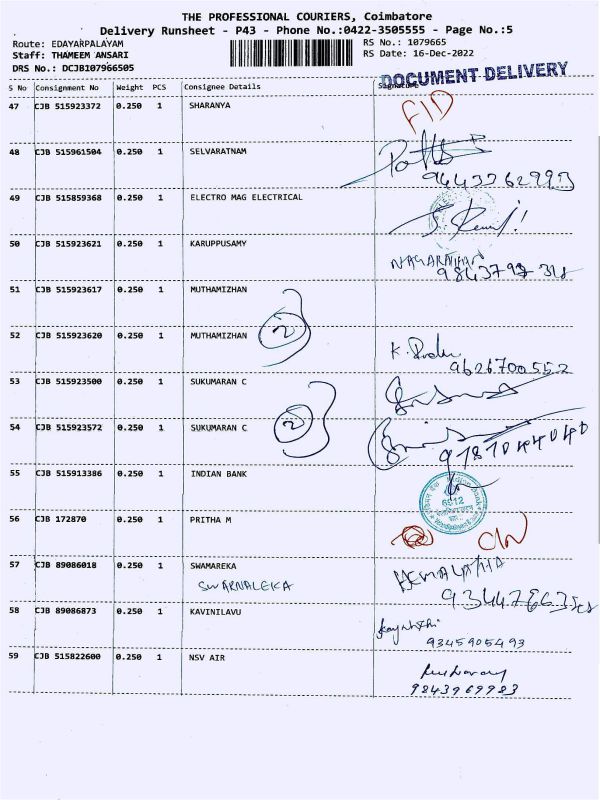 THE PROFESSIONAL COURIERS, Coimbatore
Delivery Runsheet - P43 - Phone No.:0422-3505555 - Page No.:5
Route: EDAYARPALAYAM RS No.: 1079665
Staff: THAMEEM ANSARI RS Date: 16-Dec-2022
DRS No.: DCJB107966505 DOCUMENT DELIVERY
S No Consignment No Weight PCS Consignee Details Signature
47 CJB 515923372 0.250 1 SHARANYA
48 CJB 515961504 0.250 1 SELVARATNAM
49 CJB 515859368 0.250 1 ELECTRO MAG ELECTRICAL
50 CJB 515923621 0.250 1 KARUPPUSAMY
51 CJB 515923617 0.250 1 MUTHAMIZHAN
52 CJB 515923620 0.250 1 MUTHAMIZHAN 2
9626700552
53 CJB 515923500 0.250 1 SUKUMARAN C
54 CJB 515923572 0.250 1 SUKUMARAN C 2
55 CJB 515913386 0.250 1 INDIAN BANK
56 CJB 172870 0.250 1 PRITHA M
57 CJB 89086018 0.250 1 SWAMAREKA HEMALATHA
SWARNALEKA
58 CJB 89086873 0.250 1 KAVINILAVU
9345905493
59 CJB 515822600 0.250 1 NSV AIR
9843969983